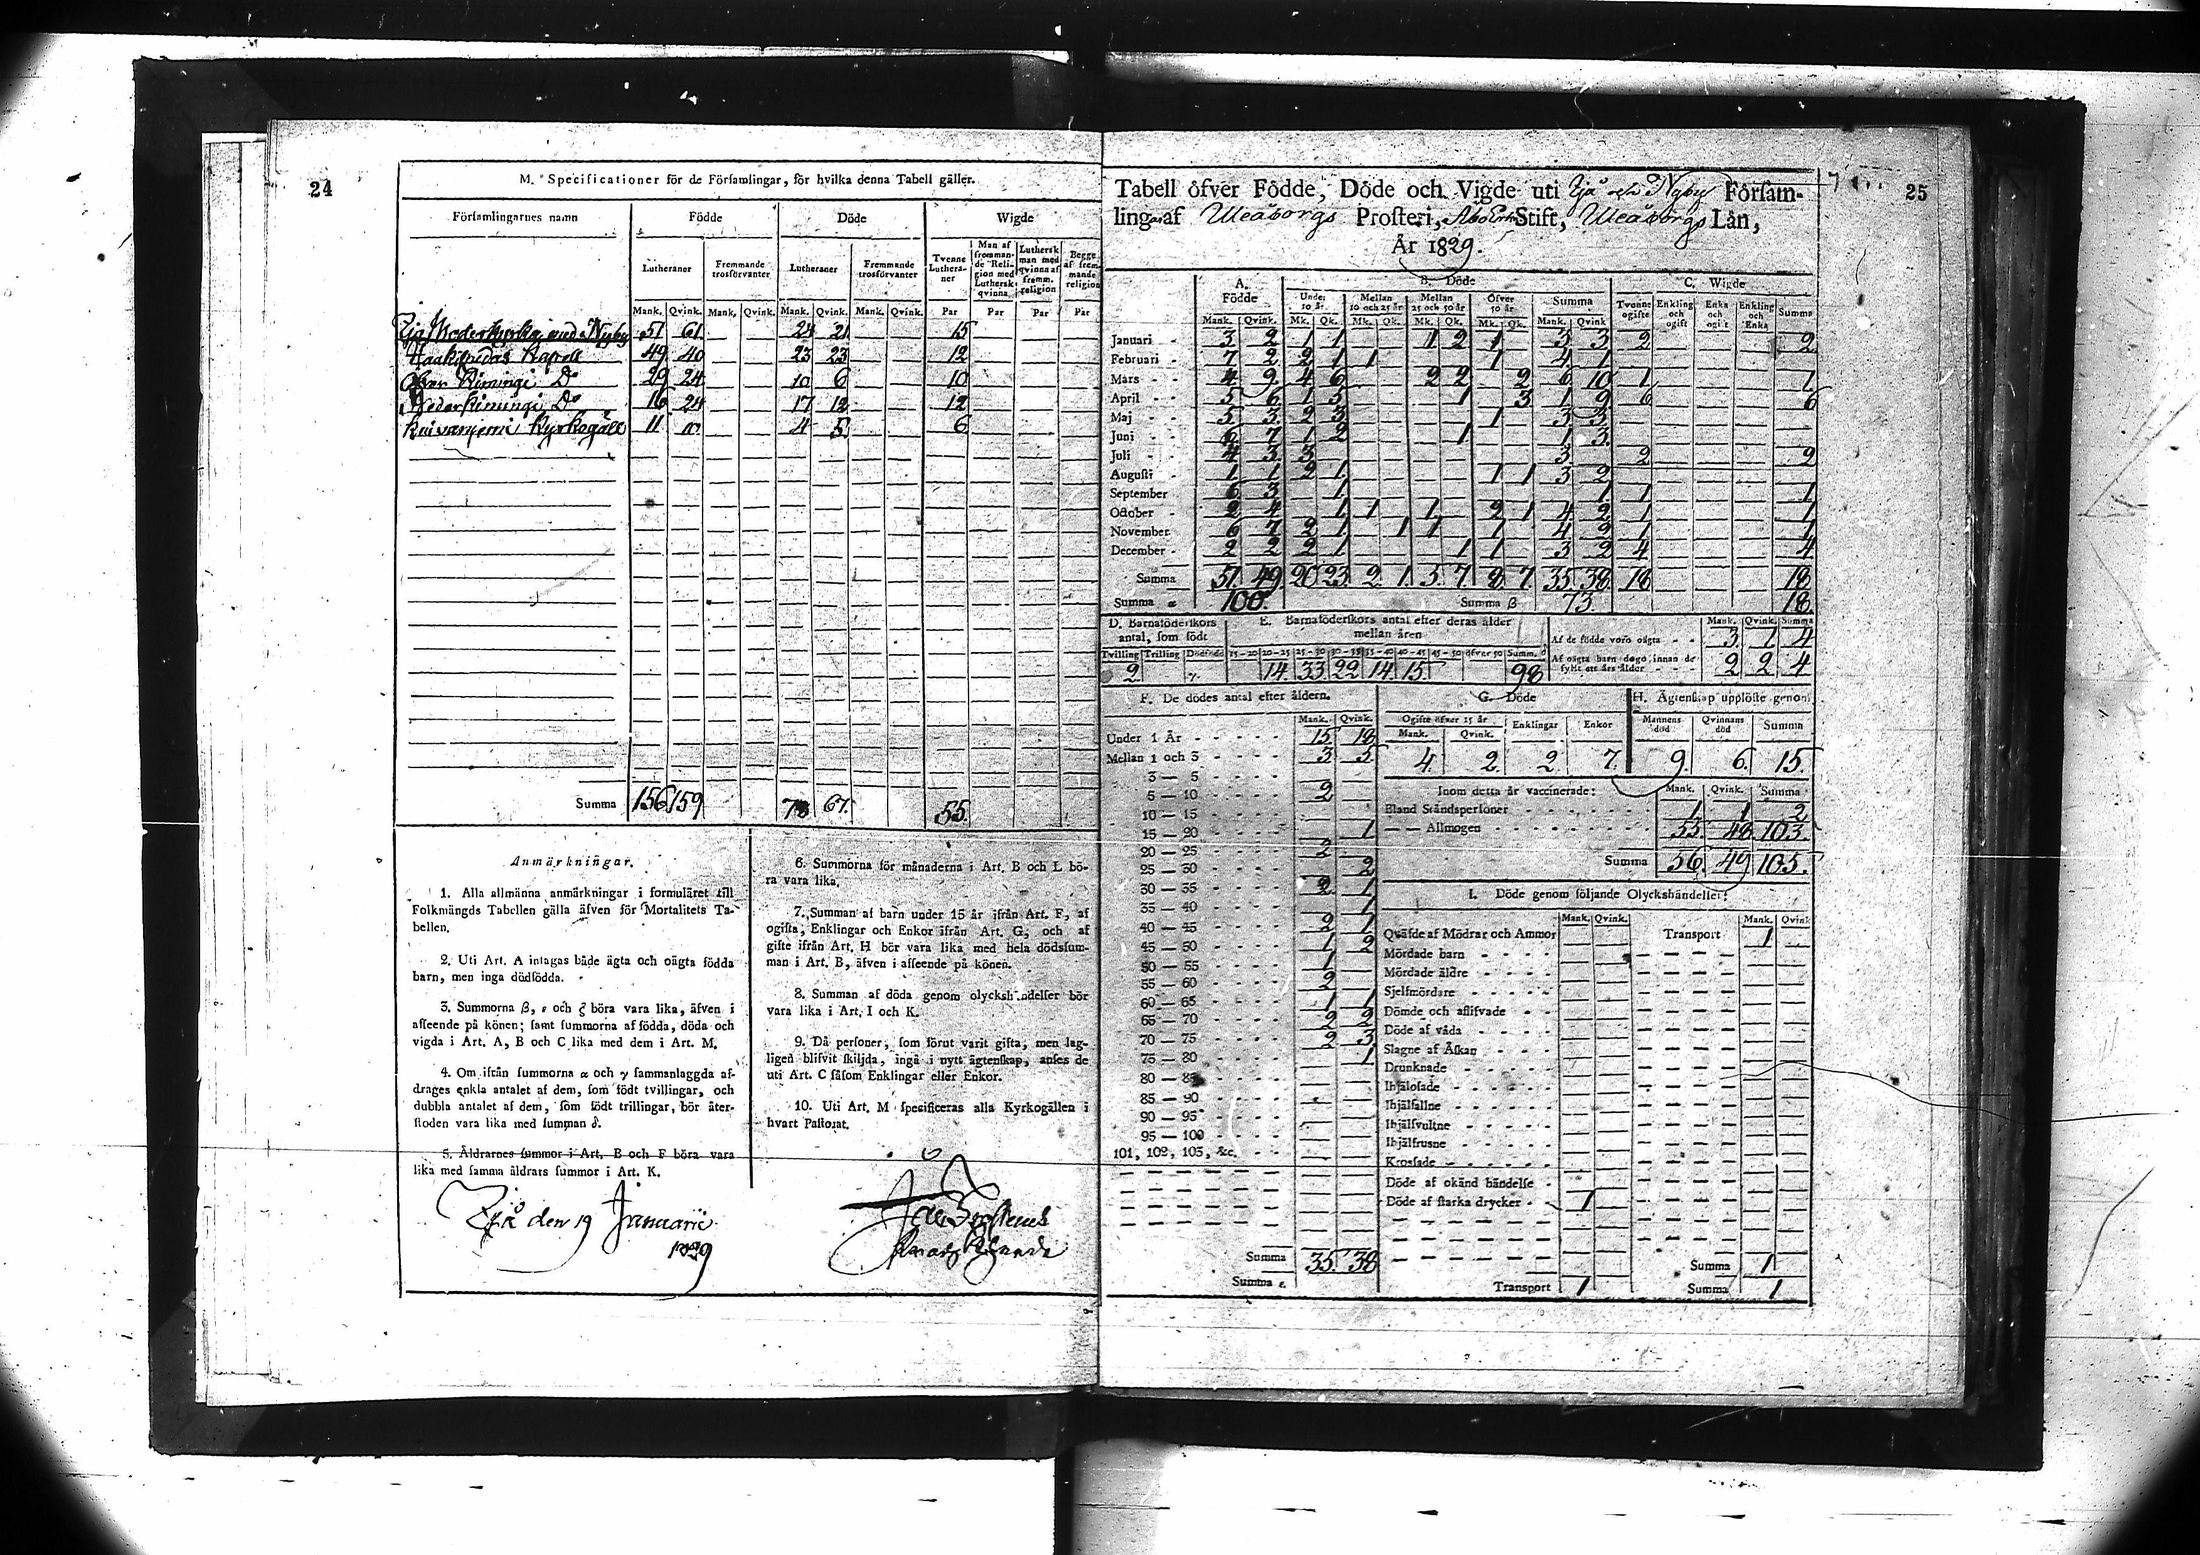 24
M. Specificationer för de Försämlingar, för hvilka denna Tabell gäller.
Församlingarnes namn Födde Döde Wigde
Lutheraner Fremmande trosförvanter Lutheraner Fremmande trosförvanter Tvenne Lutheraner Man af fremmande Religion med Luthersk qvinna Luthersk man med qvinna af fremm. religion Begge af fremmande religion
Mank. Qvink. Mank. Qvink. Mank. Qvink. Mank. Qvink. Par Par Par Par
Ijo Moderkyrka med Nyby 51 61 24 21 15
Haukipudas Kapell 49 40 23 23 12
Öfver Kimingi Do 29 24 10 6 10
Neder Kimingi Do 16 24 17 12 12
Kuivaniemi Kyrkogäll 11 4 5 6
Summa 156 159 78 67. 55.
Anmärkningar.
1. Alla allmänna anmärkningar i formuläret till
Folkmängds Tabellen gälla äfven för Mortalitets Ta-
bellen.
2. Uti Art. A intagas både ägta och oägta födda
barn, men inga dödfödda.
3. Summorna β, ε och ζ böra vara lika, äfven i
afseende på könen; samt summorna af födda, döda och
vigda i Art. A, B och C lika med dem i Art. M.
4. Om ifrån summorna α och γ sammanlaggda af-
drages enkla antalet af dem, som födt tvillingar, och
dubbla antalet af dem, som födt trillingar, bör åter-
stoden vara lika med summan δ.
5. Åldrarnes summor i Art. B och F böra vara
lika med samma åldrars summor i Art. K.
6. Summorna för månaderna i Art. B och L bö-
ra vara lika.
7. Summan af barn under 15 år ifrån Art. F, af
ogifta, Enklingar och Enkor ifrån Art. G, och af
gifte ifrån Art. H bör vara lika med hela dödssum-
man i Art. B, äfven i afseende på könen.
8. Summan af döda genom olyckshändelser bör
vara lika i Art. I och K.
9. Då personer, som förut varit gifta, men lag-
ligen blifvit skiljda, ingå i nytt ägtenskap, anses de
uti Art. C såsom Enklingar eller Enkor.
10. Uti Art. M specificeras alla Kyrkogällen i
hvart Pastorat.
Ijå den 19 Januarii
1829
25
Tabell öfver Födde, Döde och Vigde uti Ijå och Nyby Försam-
ling af Uleåborgs Prosteri, Åbo Erke Stift, Uleåborgs Län,
År 1829.
A. Födde B. Döde C. Wigde
Under 10 år Mellan 10 och 25 år Mellan 25 och 50 år Öfver 50 år Summa Tvenne ogifte Enkling och ogift Enka och ogift Enkling och Enka Summa
Mank. Qvink. Mk. Qk. Mk. Qk. Mk. Qk. Mk. Qk. Mank. Qvink.
Januari 3 2 1 1 1 2 1 3 3 2 2
Februari 7 2 2 1 1 1 4 1
Mars 4 9 4 6 2 2 2 6 10 1 1
April 5 6 1 5 1 3 1 9 6 6
Maj 5 3 2 3 1 3 3
Juni 6 7 1 2 1 1 3
Juli 4 3 3 3 2 2
Augusti 1 1 2 1 1 1 3 2
September 6 3 1 1 1 1
October 2 4 1 1 1 2 1 4 2 1 1
November 6 7 2 1 1 1 1 4 2 1 1
December 2 2 2 1 1 1 3 2 4 4
Summa 51 49 20 23 2 1 5 7 8 7 35 38 18 18
Summa α 100. Summa β 73 18.
D. Barnaföderskors antal, som födt E. Barnaföderskors antal efter deras ålder mellan åren Mank. Qvink. Summa
Af de födde voro oägta 3 1 4
Tvilling Trilling Dödfödde 15-20 20-25 25-30 30-35 35-40 40-45 45-50 öfver 50 Summ. δ
2 14 33 22 14 15 98
Af oägta barn dogo innan de fyllt ett års ålder 2 2 4
F. De dödes antal efter åldern.
Mank. Qvink.
Under 1 År 15 18
Mellan 1 och 3 3 5
3 — 5
5 — 10 2
10 — 15
15 — 20 1
20 — 25 2
25 — 30 2
30 — 35 2 1
35 — 40 1
40 — 45 2 1
45 — 50 1 2
50 — 55 1
55 — 60 2
60 — 65 1 1
65 — 70 2 2
70 — 75 2 3
75 — 80 1
80 — 85
85 — 90
90 — 95
95 — 100
101, 102, 103, &c.
Summa 35. 38
Summa ε.
G. Döde H. Ägtenskap upplöste genom
Ogifte öfver 15 år Enklingar Enkor Mannens död Qvinnans död Summa
Mank. Qvink.
4. 2. 2. 7. 9. 6. 15.
Inom detta år vaccinerade: Mank. Qvink. Summa
Bland Ståndspersoner 1 1 2
— — Allmogen 55 48 103.
Summa 56. 49 105.
I. Döde genom följande Olyckshändelser:
Mank. Qvink. Mank. Qvink
Qväfde af Mödrar och Ammor Transport 1
Mördade barn
Mördade äldre
Sjelfmördare
Dömde och aflifvade
Döde af våda
Slagne af Åskan
Drunknade
Ihjälosade
Ihjälfallne
Ihjälsvultne
Ihjälfrusne
Krossade
Döde af okänd händelse
Döde af starka drycker 1
Summa 1
Transport 1 Summa 1